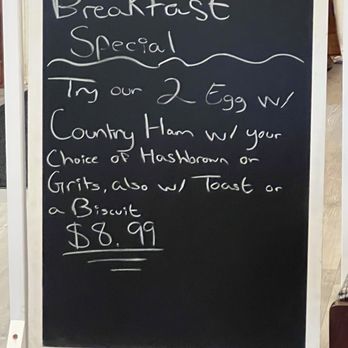 Breakfast
Special
Try our 2 Egg w/
Country Ham w/ your
Choice of Hashbrown or
Grits, also w/ Toast or
a Biscuit
$8.99